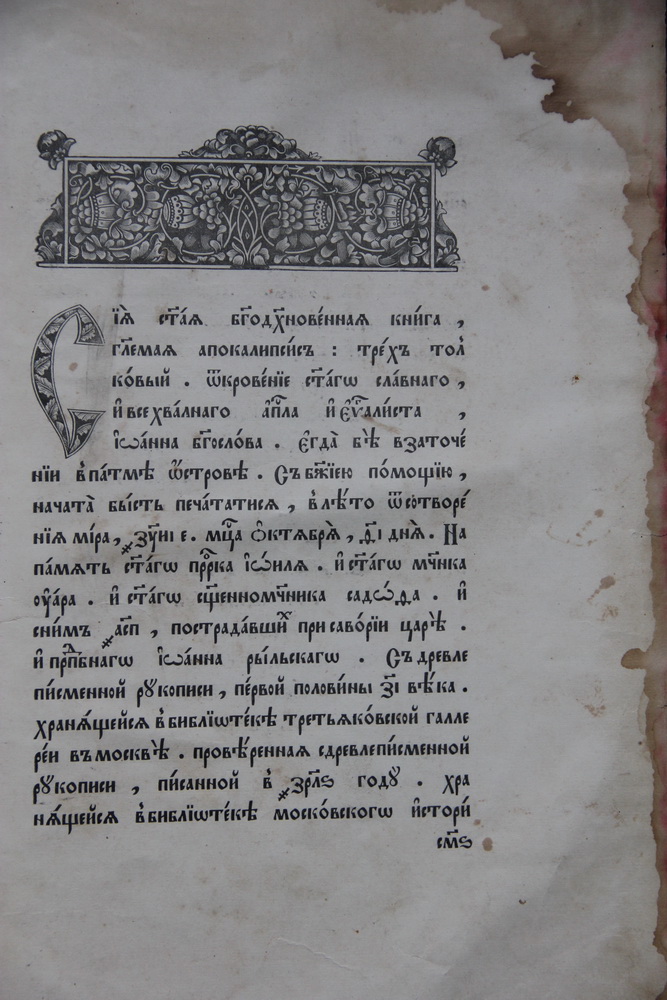 Сїѧ҄ ст҃аѧ бг҃одх҃нове́ннаѧ кни́га ,
гл҃емаѧ апокалипси́съ : тре́хъ тол
ко́вый . ѿкрове́нїе ст҃а́гѡ сла́внаго ,
и҆ всехва́лнаго а҆пⷭ҇ла и҆ є҆ѵⷢ҇али́ста ,
і҆ѡа́нна бг҃осло́ва . є҆гда̀ бѣ̀ взаточе́
нїи в̾па́тмѣ ѻ҆́стровѣ . Съ бж҃їею по́мощїю ,
начата̀ бы́сть печа́татисѧ , в̾лѣ́то ѿ сотворе́
нїѧ мі́ра , ҂зу҃н і е . мц҃а ѻ҆ктѧбрѧ̀ , ѳ҃і днѧ̀ . На
па́мѧть ст҃а́гѡ прⷪ҇рка і҆ѡ́илѧ . и҆ ст҃а́гѡ мч҃нка
ᲂу҆а́ра . и҆ ст҃а́гѡ сщ҃енномч҃ника садѡ́ѳа . и҆
сни́мъ ҂а҃сп , пострада́вшиⷯ при саво́рїи царѣ̀ .
и҆ прпⷣбнагѡ і҆ѡа́нна ры́льскагѡ . Съ древле
пи́сменной рꙋ́кописи , пе́рвой полови́ны з҃і вѣ́ка .
хранѧ́щейсѧ в̾библїѡте́кѣ третьѧко́вской галле
ре́и въ москвѣ̀ . провѣ́реннаѧ сдревлепи́сменной
рꙋ́кописи , пи́санной в̾ ҂зрл҃ѕ годꙋ̀ . хра
нѧ́щейсѧ в̾библїѡте́кѣ моско́вскогѡ и҆стори́
см҃ѕ